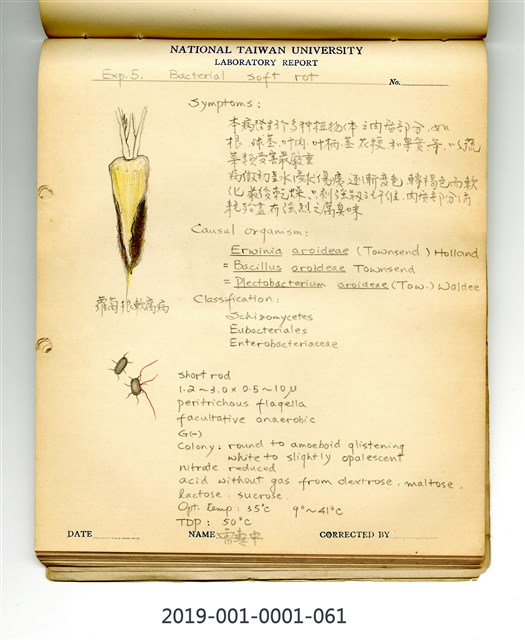 NATIONAL TAIWAN UNIVERSITY
LABORATORY REPORT
Exp. 5. Bacterial soft rot No.
Symptoms:
本病發生於多种植物体之肉質部分,如
根.球莖.叶肉.叶柄.莖.花梗和果實等,以蔬
菜類受害最嚴重
病做初呈水浸狀傷痍,逐漸音色,轉褐色而軟
化.最後乾燥.只剩強韌之纤維.內容部分消
耗殆盡.有強烈之腐臭味
Causal organism:
Erwinia aroideae (Townsend) Holland
= Bacillus aroideae Townsend
= Plectobacterium aroideae (Tow.) Waldee
蘿蔔根軟腐病
Classification:
Schizomycetes
Eubacteriales
Enterobacteriaceae
short rod
1.2~3.0 x 0.5~1.0 μ
peritrichous flagella
facultative anaerobic
G(-)
Colony: round to amoeboid glistening
white to slightly opalescent
nitrate reduced
acid without gas from dextrose, maltose,
lactose. sucrose.
Opt. temp: 35°C 9°~41°C
TDP: 50°C
DATE NAME CORRECTED BY
2019-001-0001-061